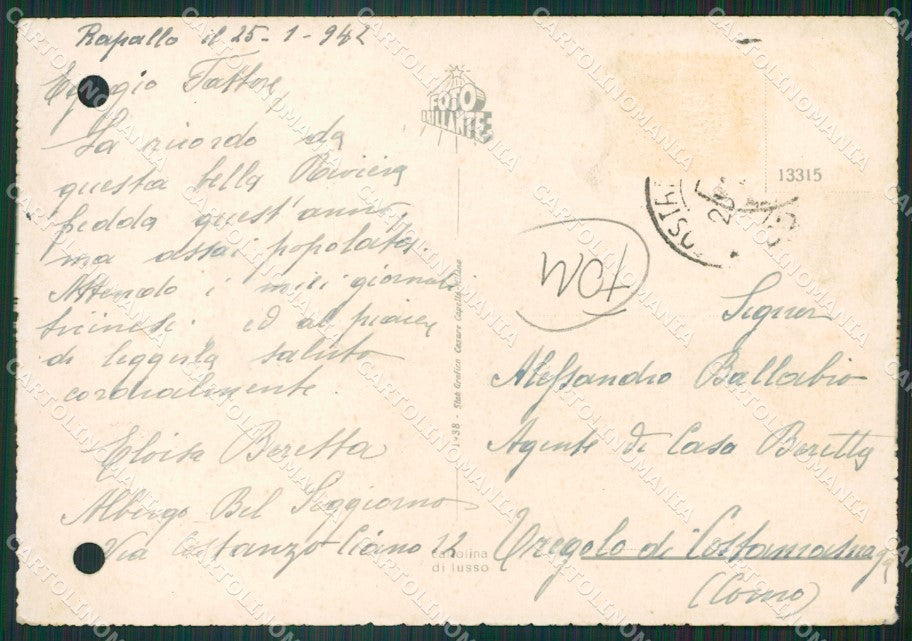 Rapallo il 25-1-942
Egregio Fattore,
La ricordo da
questa bella Riviera
fredda quest'anno,
ma assai popolata.
Attendo i miei giornali
ticinesi ed al piacere
di leggerla saluto
cordialmente.
Eloisa Beretta
Albergo Bel Soggiorno
Via Costanzo Ciano 22
FOTO
BRILLANTE
1938 - Stab Grafico Cesare Capello
cartolina
di lusso
13315
25
TOM
Signor
Alessandro Ballabio
Agente di Casa Beretta
Tregolo di Costamasnaga
(Como)
CARTOLINOMANIA